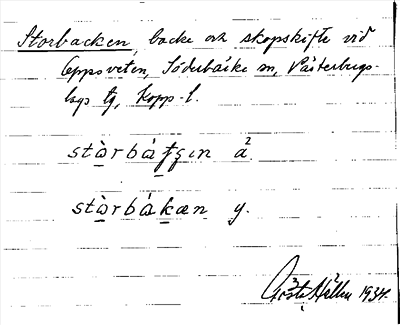 Storbacken, backe och skopskifte vid
Eppsveten, Söderbärke sn, Västerbergs-
lags tg, Kopp. l.
stàrbátʂın a²
stàrbákæn y.
Gösta Hallin 1934.